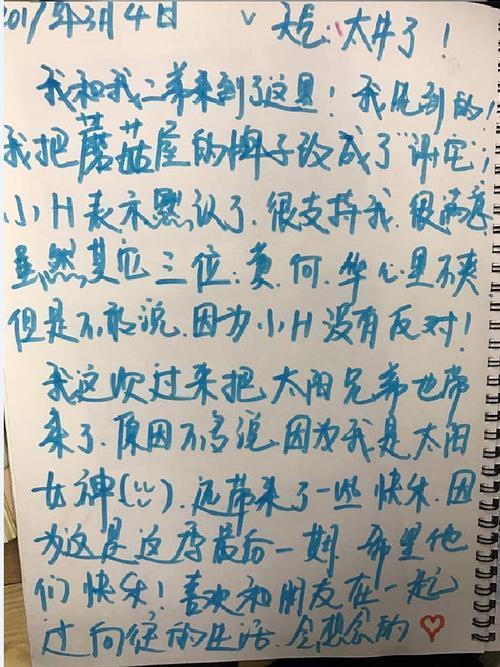 2017年3月4日 天气:太井了!
我和我二弟来到了这里!我见到的!
我把蘑菇屋的牌子改成了"谢宅!
小H表示默认了.很支持我.很满意
虽然其它三位.黄.何.华心里不爽
但是不敢说.因为小H没有反对!
我这次过来把太阳兄弟也带
来了.原因不多说.因为我是太阳
女神(ü).还带来了一些快乐.因
为这是这季最后一期.希望他
们快乐!喜欢和朋友在一起
过向往的生活.会想念的♡